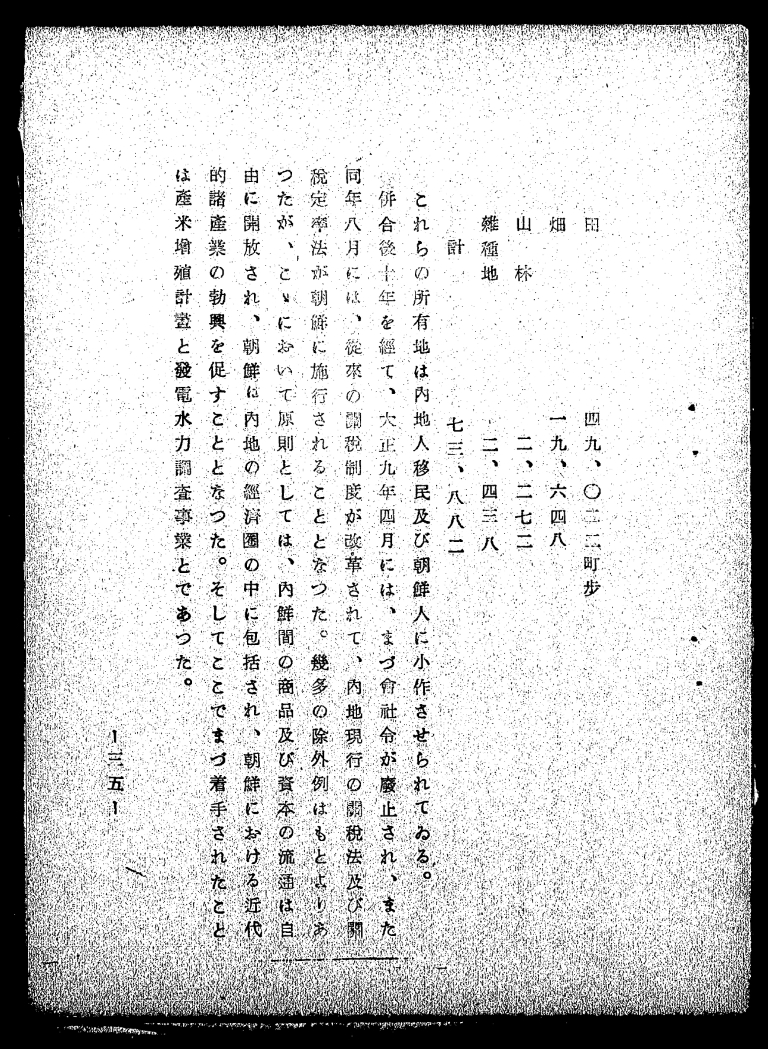 田　四九、〇二二町歩
畑　一九、六四八
山林　二、二七二
雜種地　二、四三八
計　七三、八八二
これらの所有地は內地人移民及び朝鮮人に小作させられてゐる。
併合後十年を經て、大正九年四月には、まづ會社令が廢止され、また
同年八月には、從來の關稅制度が改革されて、內地現行の關稅法及び關
稅定率法が朝鮮に施行されることとなつた。幾多の除外例はもとよりあ
つたが、こゝにおいて原則としては、內鮮間の商品及び資本の流通は自
由に開放され、朝鮮は內地の經濟圈の中に包括され、朝鮮における近代
的諸產業の勃興を促すこととなつた。そしてここでまづ着手されたこと
は產米增殖計畫と發電水力調査事業とであつた。
ー三五ー